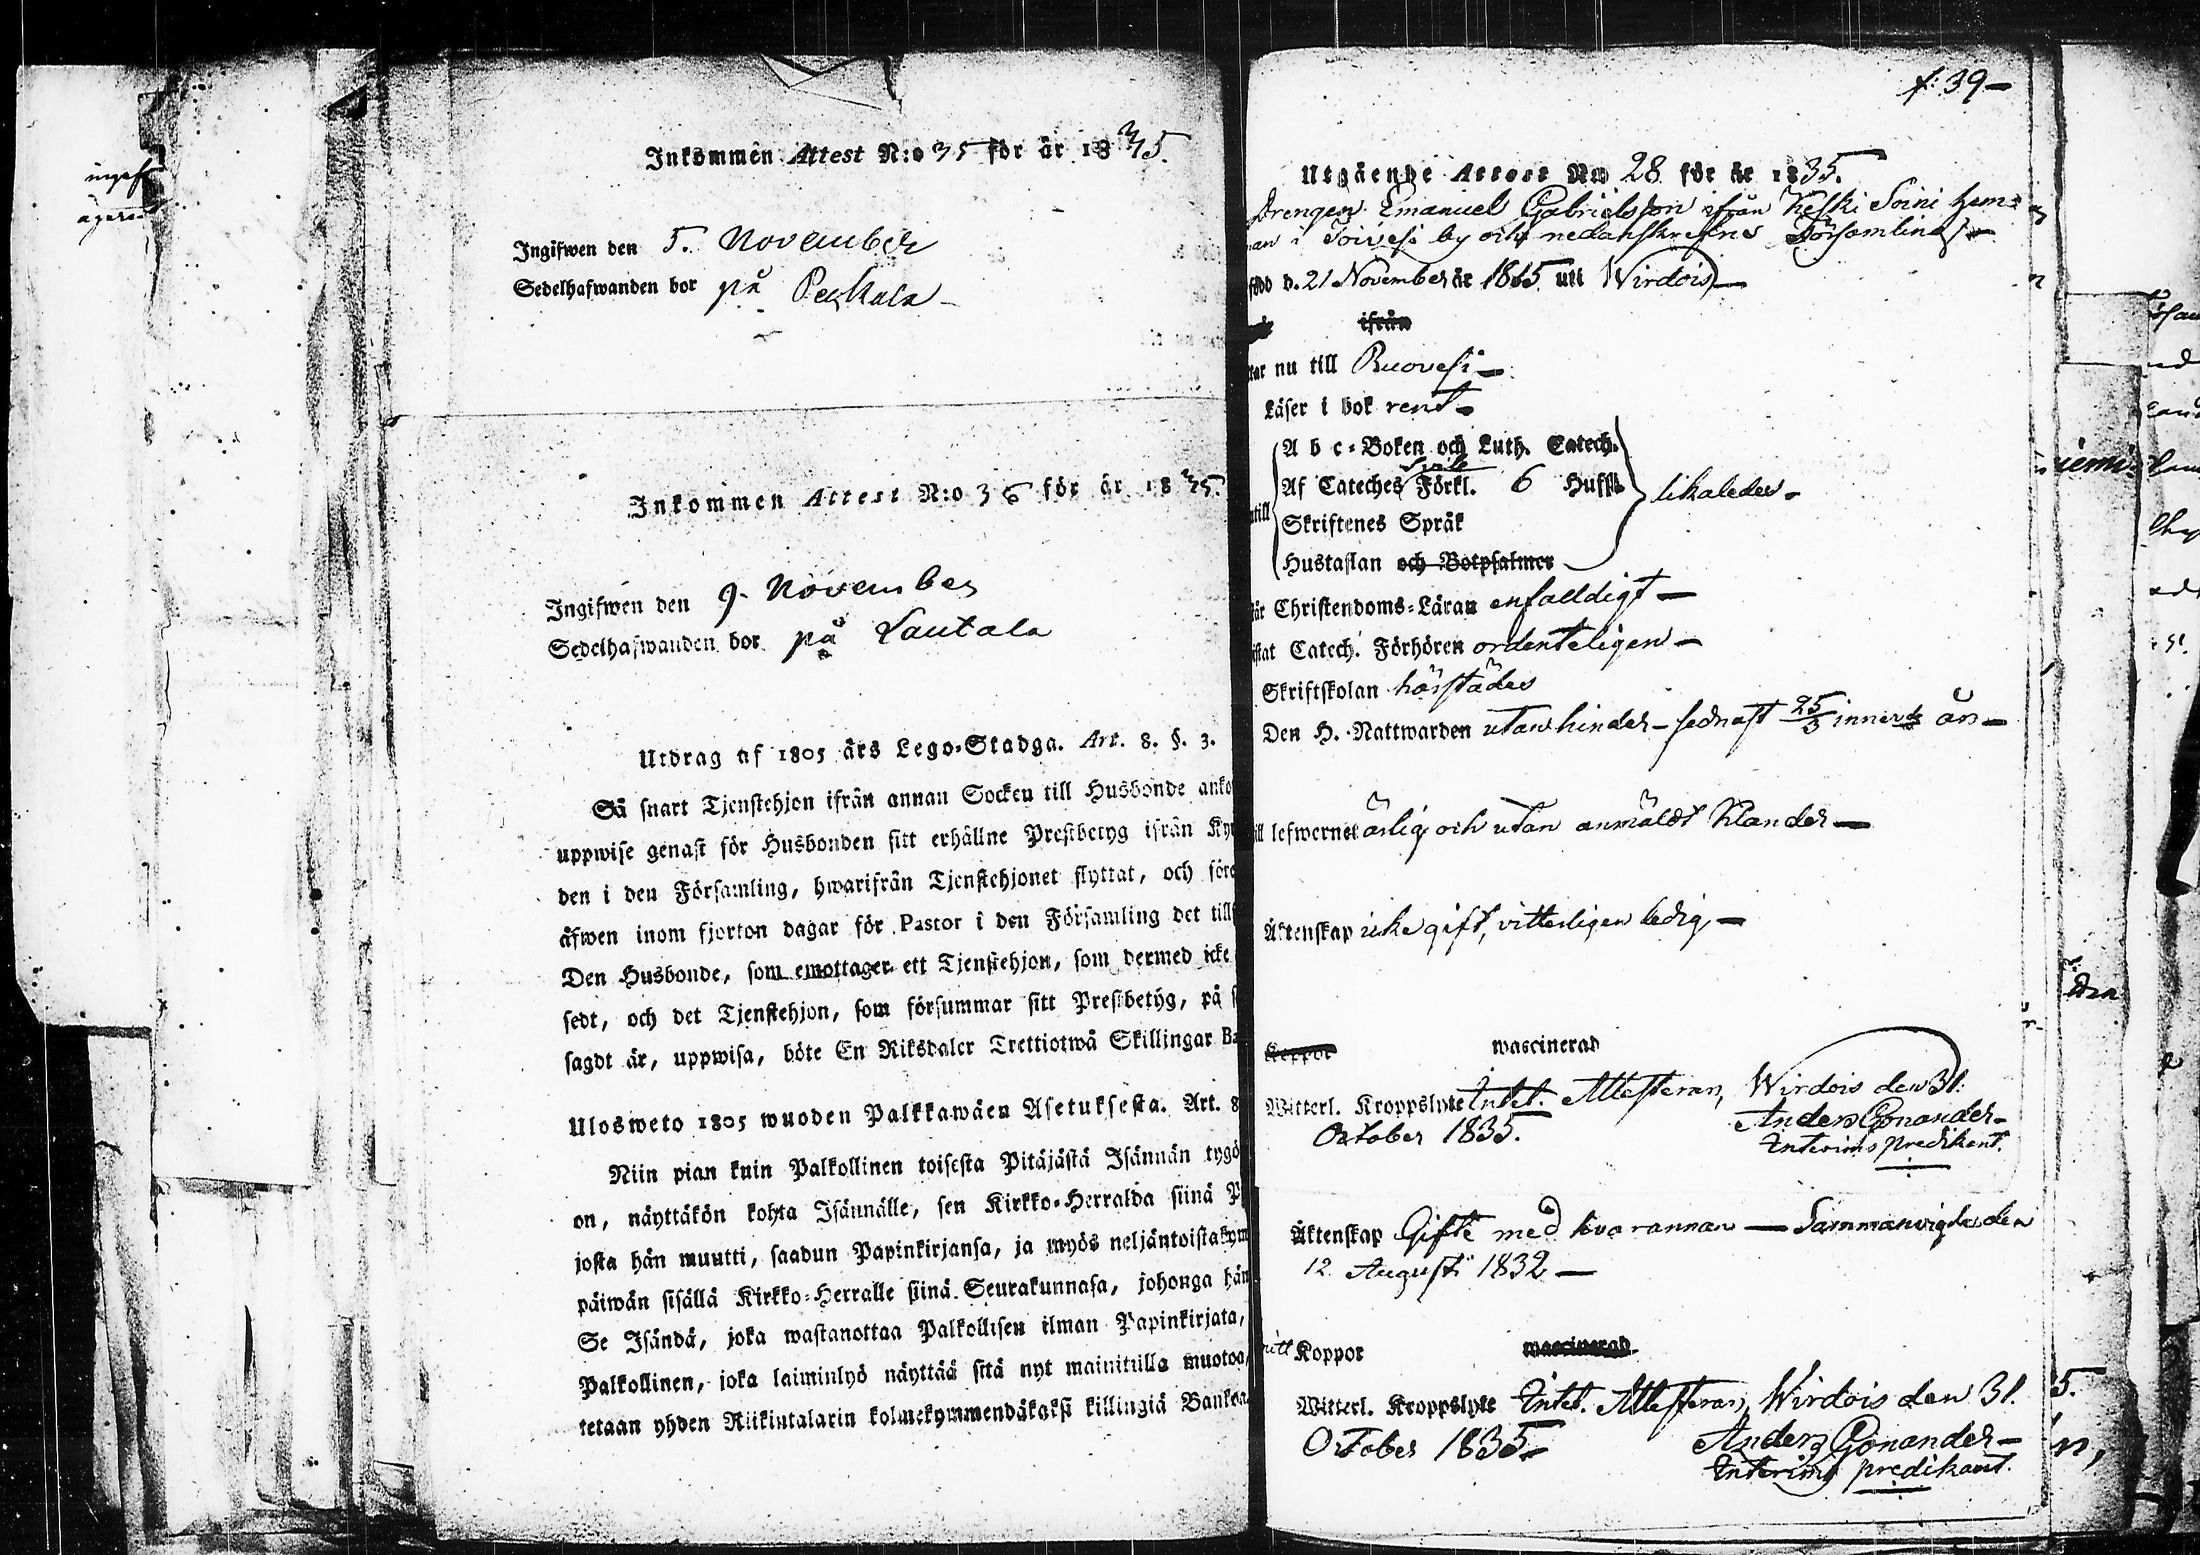 Inkommen Attest N:o 35 för år 1835.
Ingifwen den 5. November
Sedelhafwanden bor på Peskala
Inkommen Attest N:o 36 för år 1835.
Ingifwen den 9. November
Sedelhafwanden bor på Lautala
Utdrag af 1805 års Lego-Stadga. Art. 8. §. 3.
Så snart Tjenstehjon ifrån annan Socken till Husbonde anko
uppwise genast för Husbonden sitt erhållne Prestbetyg ifrån Ky
den i den Församling, hwarifrån Tjenstehjonet flyttat, och före
äfwen inom fjorton dagar för Pastor i den Församling det till
Den Husbonde, som emottager ett Tjenstehjon, som dermed icke
sedt, och det Tjenstehjon, som försummar sitt Prestbetyg, på s
sagdt är, uppwisa, böte En Riksdaler Trettiotwå Skillingar Ba
Ulosweto 1805 wuoden Palkkawäen Asetuksesta. Art. 8
Niin pian kuin Palkollinen toisesta Pitäjästä Isännän tygö
on, näyttäkön kohta Isännälle, sen Kirkko-Herralda siinä P
josta hän muutti, saadun Papinkirjansa, ja myös neljäntoistakym
päiwän sisällä Kirkko-Herralle siinä Seurakunnasa, johonga hän
Se Isändä, joka wastanottaa Palkollisen ilman Papinkirjata,
Palkollinen, joka laiminlyö näyttää sitä nyt mainitulla muotoa,
tetaan yhden Riikintalarin kolmekymmendäkaksi killingiä Banko
f: 39
Utgående Attest No 28 för år 1835.
Drengen Emanuel Gabrielsson ifrån Keski Soini hem=
an i Toivesi by och nedanskrefne Församling
född d. 21 November år 1815 uti Wirdois
ifrån
tar nu till Ruovesi
Läser i bok rent
A b c-Boken och Luth. Catech.
Af Cateches Förkl. 6 Hufst. likaledes
Skriftenes Språk
Hustaflan och Botpsalmer
är Christendoms-Läran enfalldigt
istat Catech. Förhören ordenteligen
Skriftskolan härstädes
Den H. Nattwarden utan hinder sednast 25/3 innev. år
ill lefwernet ärlig och utan anmäldt klander
Äktenskap icke gift, vitterligen ledig
Koppor waccinerad
Witterl. Kroppslyte Intet. Attesteran, Wirdois den 31.
October 1835. Anders Gonander
Interims predikant.
Äktenskap Gifte med hvarannan Sammanvigde den
12 Augusti 1832
Koppor waccinerad
Witterl. Kroppslyte Intet. Attesteran, Wirdois den 31.
October 1835. Anders Gonander
Interims predikant.